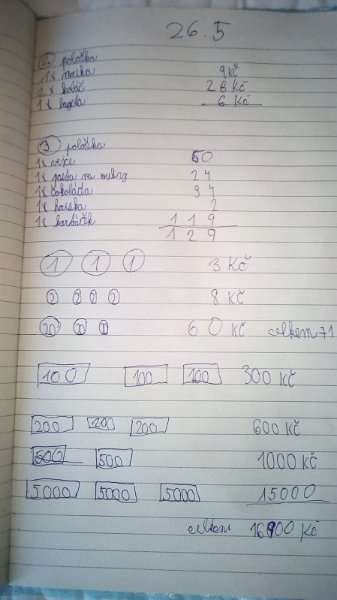 26.5
2. položka
1x 9 Kč
2x koláč 26 Kč
1x 6 Kč
3 položka
1x 60
1x pasta na zuby 24
1x čokoláda 34
1x houska 2
1x kartáček 119
129
1 1 1 3 Kč
2 2 2 2 8 Kč
20 60 Kč celkem 71
100 100 100 300 Kč
200 200 200 600 Kč
500 500 1000 Kč
5000 5000 5000 15000
celkem 16900 Kč